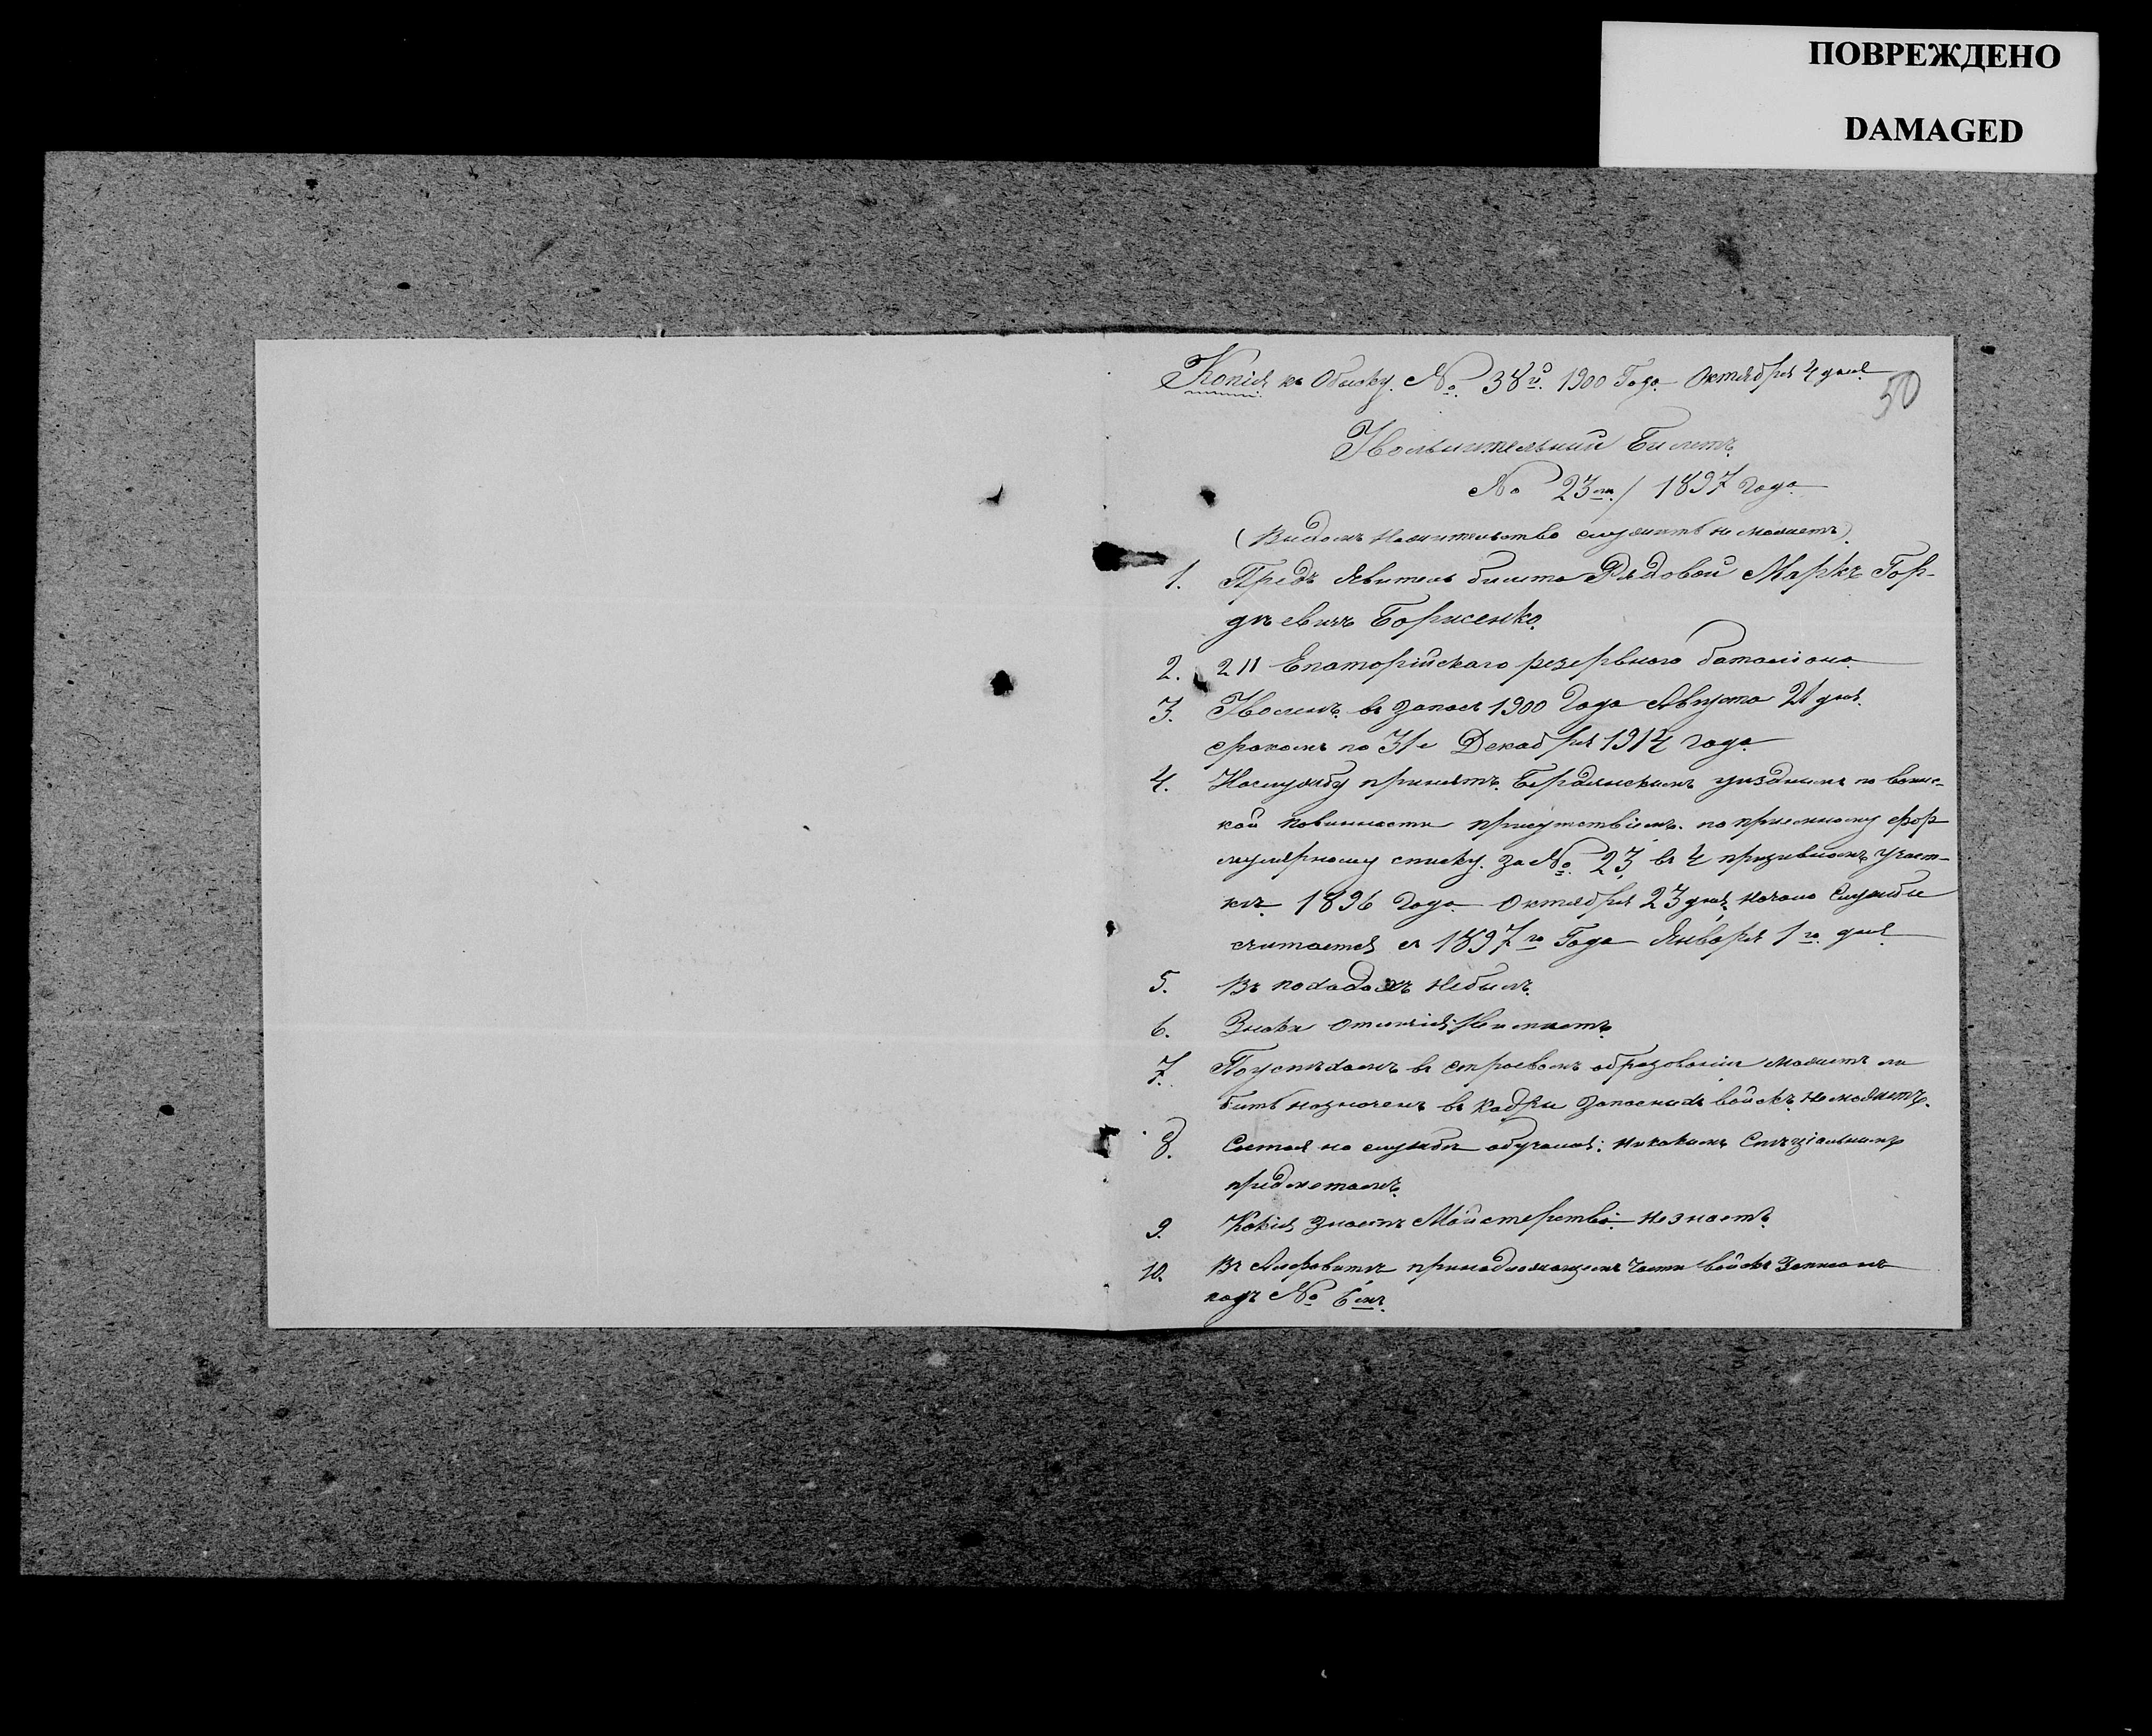 ПОВРЕЖДЕНО
DAMAGED
Копія къ Обыску. № 38й. 1900 Года Октября 4 дня
50
Увольнительный Билетъ.
№ 23 / 1897 года
(Видомъ на жительство служить не можетъ)
1. Предъявитель билета Рядовой Маркъ Гор-
дѣевичъ Борисенко.
2. 211 Евпаторійскаго резервного баталіона
3. Уволенъ въ запасъ 1900 Года Августа 21 дня.
срокомъ по 31е Декабря 1914 года
4. На службу принятъ. Бердянскимъ уѣзднымъ по воинс-
кой повинности присутствіемъ. по пріемному фор
мулярному списку. за №. 23, въ 4 призывномъ участ-
кѣ 1896 Года Октября 23 дня, начало Службы
считается съ 1897го Года Января 1го. дня
5. Въ походахъ не былъ.
6. Знаки отличія: Не имѣетъ.
7. По успѣхамъ въ строевомъ образованіи можетъ ли
быть назначенъ въ кадры запасныхъ войскъ. не можетъ.
8. Состоя на службѣ обучался: никакимъ Спеціальнымъ
предметамъ.
9. Какія знаетъ Майстерства. не знаетъ.
10. Въ Алфавитѣ принадлежащемъ части войскъ Записанъ
подъ № 6мъ.